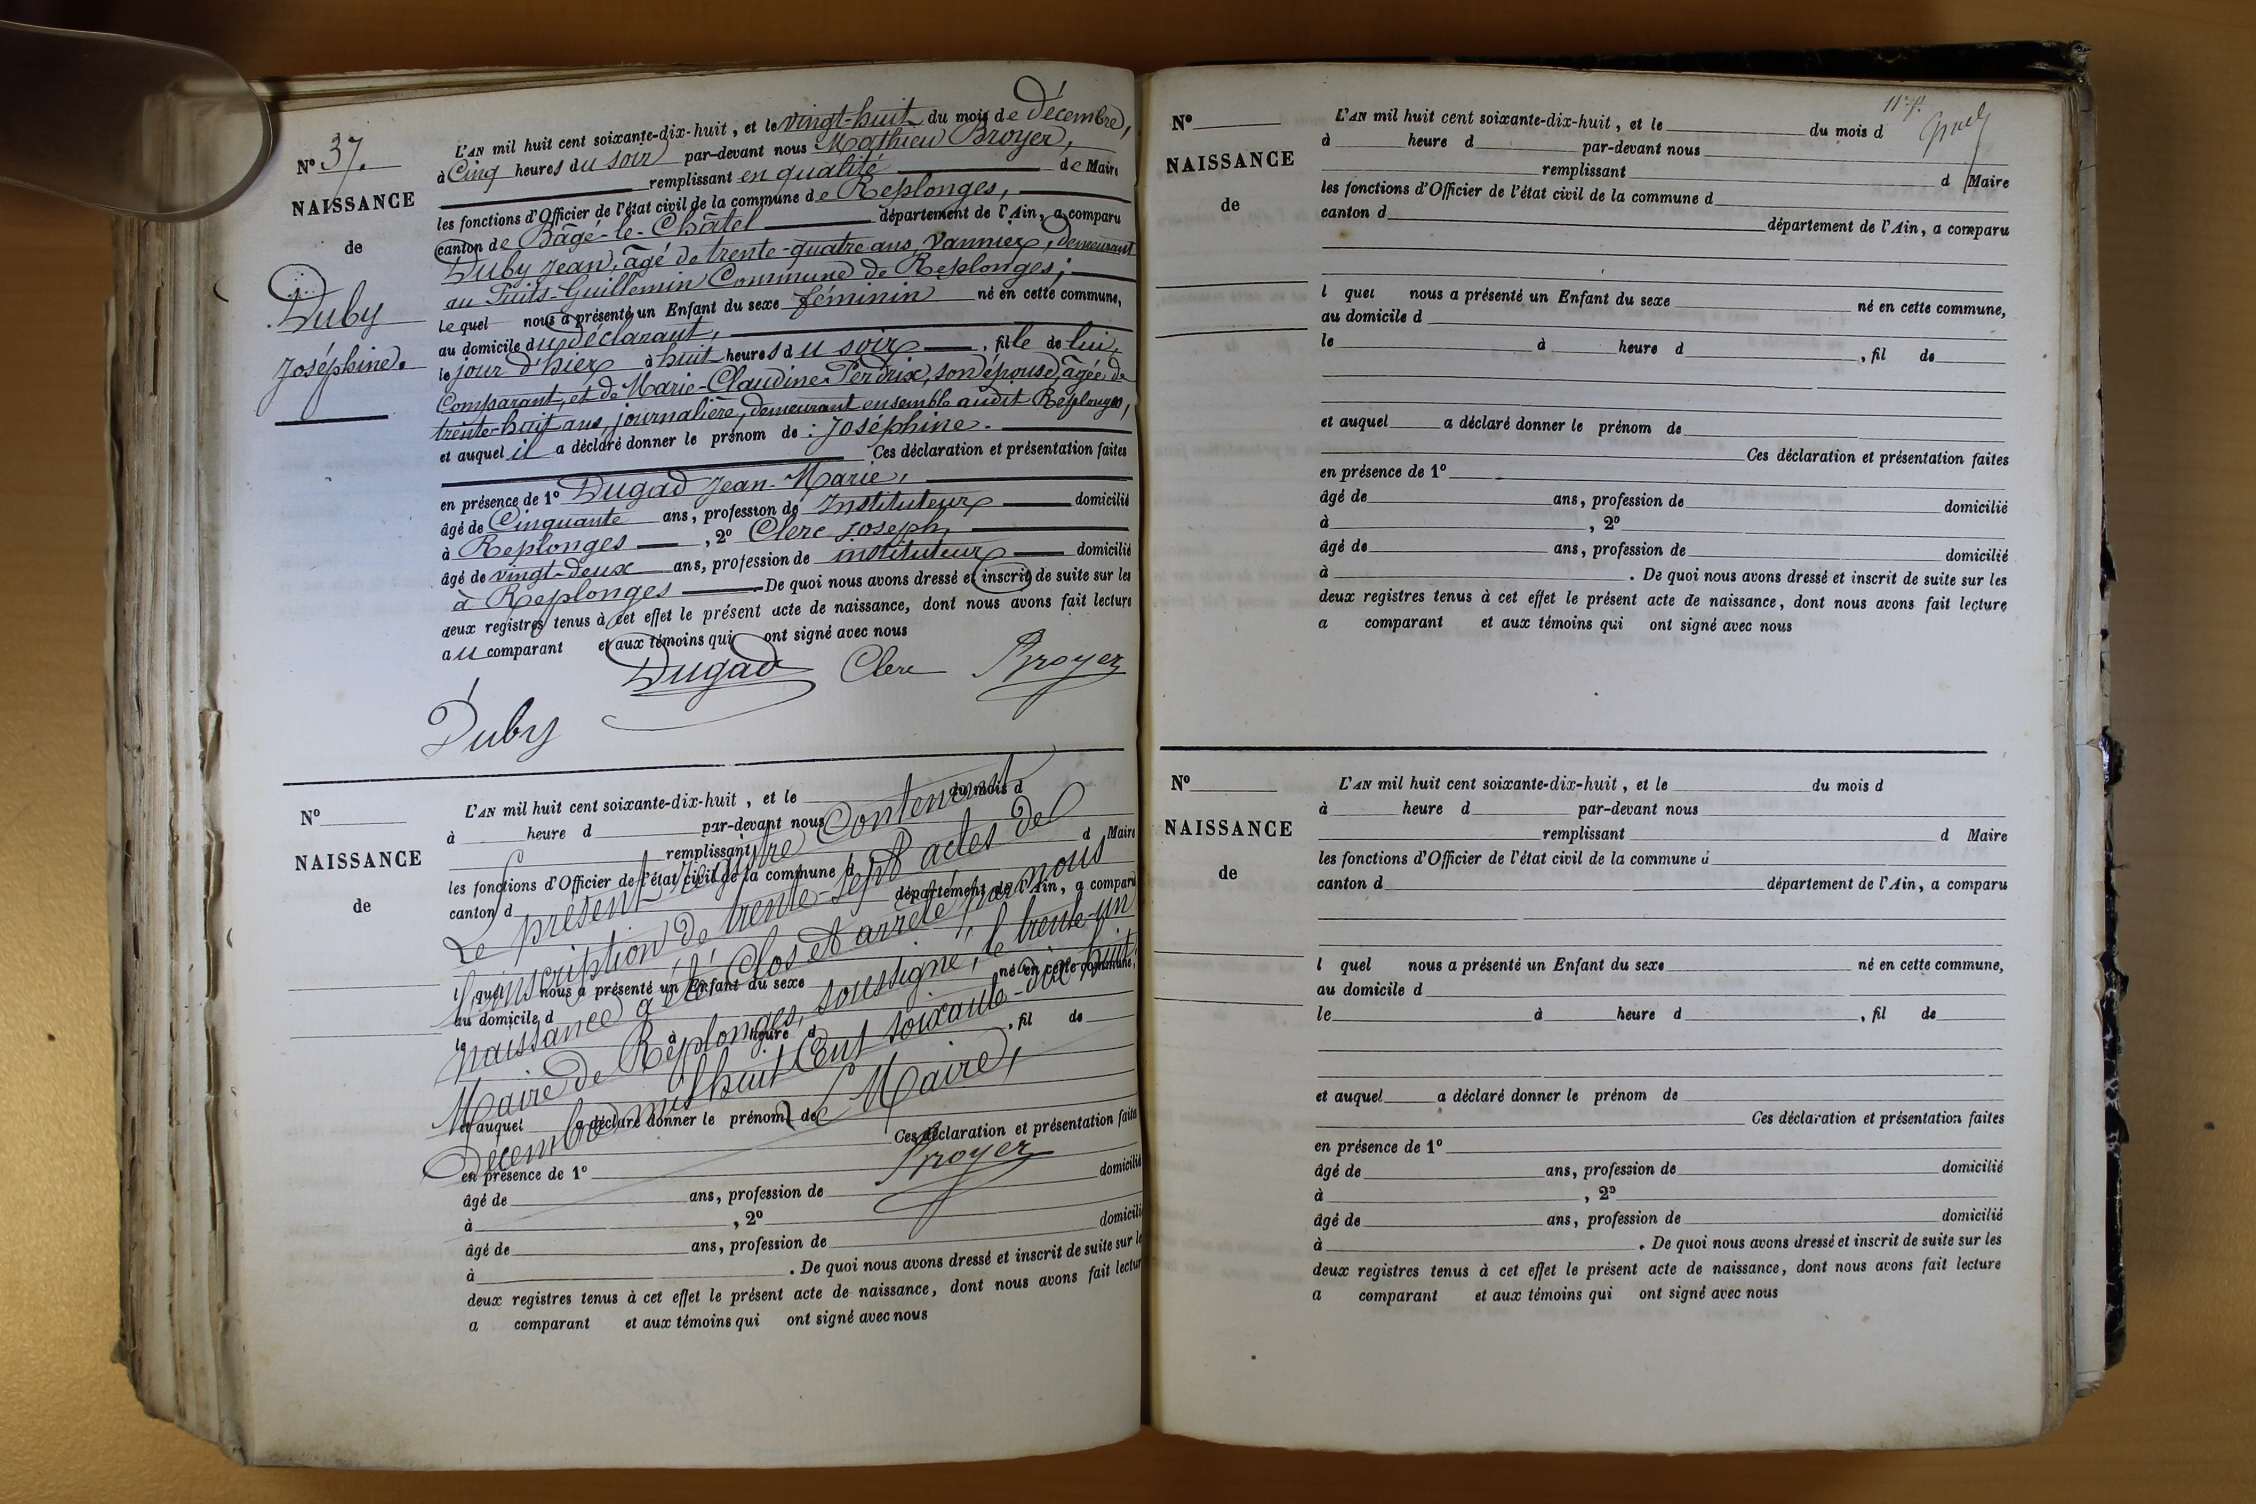 N° 37.
NAISSANCE
de
Duby
Joséphine.
L'AN mil huit cent soixante-dix-huit, et le vingt-huit du mois de Décembre,
à Cinq heures du soir par-devant nous Mathieu Broyer,
remplissant en qualité de Maire
les fonctions d'Officier de l'état civil de la commune de Replonges,
canton de Bâgé-le-Châtel département de l'Ain, a comparu
Duby Jean, âgé de trente-quatre ans, Vannier, demeurant
au Puits-Guillemin Commune de Replonges;
lequel nous a présenté un Enfant du sexe féminin né en cette commune,
au domicile du déclarant,
le jour d'hier à huit heures du soir, fille de lui,
Comparant, et de Marie-Claudine Perdrix, son épouse, âgée de
trente-huit ans, journalière, demeurant ensemble audit Replonges,
et auquel il a déclaré donner le prénom de : Joséphine.
Ces déclaration et présentation faites
en présence de 1° Dugad Jean-Marie,
âgé de Cinquante ans, profession de Instituteur domicilié
à Replonges, 2° Clerc Joseph,
âgé de vingt-deux ans, profession de instituteur domicilié
à Replonges. De quoi nous avons dressé et inscrit de suite sur les
deux registres tenus à cet effet le présent acte de naissance, dont nous avons fait lecture
au comparant et aux témoins qui ont signé avec nous
Dugad Clerc Broyer
Duby
N°
NAISSANCE
de
L'AN mil huit cent soixante-dix-huit, et le du mois d
à heure d par-devant nous
remplissant d Maire
les fonctions d'Officier de l'état civil de la commune d
canton d département de l'Ain, a comparu
l quel nous a présenté un Enfant du sexe né en cette commune,
au domicile d
le à heure d , fil de
et auquel a déclaré donner le prénom de
Ces déclaration et présentation faites
en présence de 1°
âgé de ans, profession de domicilié
à , 2°
âgé de ans, profession de domicilié
à . De quoi nous avons dressé et inscrit de suite sur le
deux registres tenus à cet effet le présent acte de naissance, dont nous avons fait lectur
a comparant et aux témoins qui ont signé avec nous
Le présent registre Contenant
l'inscription de trente-sept actes de
naissance a été Clos et arrêté par nous
Maire de Replonges, soussigné, le trente-un
Décembre mil huit Cent soixante-dix-huit.
Le Maire,
Broyer
N°
NAISSANCE
de
L'AN mil huit cent soixante-dix-huit, et le du mois d
à heure d par-devant nous
remplissant d Maire
les fonctions d'Officier de l'état civil de la commune d
canton d département de l'Ain, a comparu
l quel nous a présenté un Enfant du sexe né en cette commune,
au domicile d
le à heure d , fil de
et auquel a déclaré donner le prénom de
Ces déclaration et présentation faites
en présence de 1°
âgé de ans, profession de domicilié
à , 2°
âgé de ans, profession de domicilié
à . De quoi nous avons dressé et inscrit de suite sur les
deux registres tenus à cet effet le présent acte de naissance, dont nous avons fait lecture
a comparant et aux témoins qui ont signé avec nous
N°
NAISSANCE
de
L'AN mil huit cent soixante-dix-huit, et le du mois d
à heure d par-devant nous
remplissant d Maire
les fonctions d'Officier de l'état civil de la commune d
canton d département de l'Ain, a comparu
l quel nous a présenté un Enfant du sexe né en cette commune,
au domicile d
le à heure d , fil de
et auquel a déclaré donner le prénom de
Ces déclaration et présentation faites
en présence de 1°
âgé de ans, profession de domicilié
à , 2°
âgé de ans, profession de domicilié
à . De quoi nous avons dressé et inscrit de suite sur les
deux registres tenus à cet effet le présent acte de naissance, dont nous avons fait lecture
a comparant et aux témoins qui ont signé avec nous